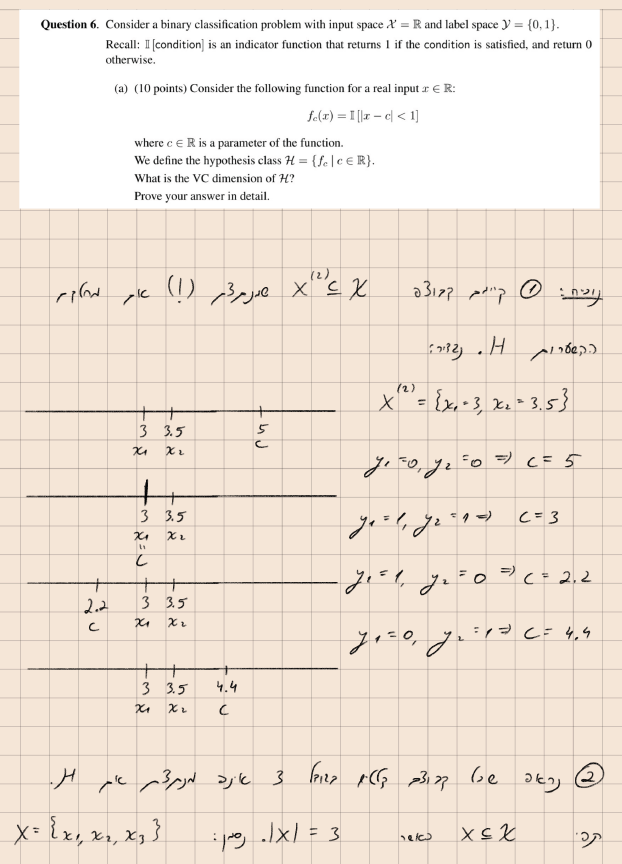 Question 6. Consider a binary classification problem with input space 𝒳 = ℝ and label space 𝒴 = {0, 1}.
Recall: 𝕀 [condition] is an indicator function that returns 1 if the condition is satisfied, and return 0
otherwise.
(a) (10 points) Consider the following function for a real input x ∈ ℝ:
f_c(x) = 𝕀 [|x − c| < 1]
where c ∈ ℝ is a parameter of the function.
We define the hypothesis class ℋ = {f_c | c ∈ ℝ}.
What is the VC dimension of ℋ?
Prove your answer in detail.
① קיימת קבוצה X^(2) ⊆ 𝒳 (!) את מחלקת
ההשערות H. נגדיר:
X^(2) = {x₁=3, x₂=3.5}
3 3.5 5
x₁ x₂ c
y₁=0, y₂=0 ⇒ c=5
3 3.5
x₁ x₂
"
c
y₁=1, y₂=1 ⇒ c=3
2.2 3 3.5
c x₁ x₂
y₁=1, y₂=0 ⇒ c=2.2
3 3.5 4.4
x₁ x₂ c
y₁=0, y₂=1 ⇒ c=4.4
② נראה שכל קבוצה בגודל 3 אינה מנתצת את H.
X ⊆ 𝒳 כאשר |X| = 3. נסמן: X = {x₁, x₂, x₃}